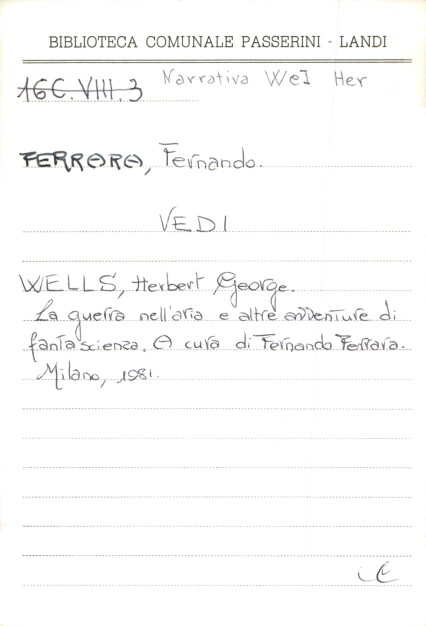 BIBLIOTECA COMUNALE PASSERINI - LANDI
16C.VIII.3 Narrativa Wel Her
FERRARA, Fernando.
VEDI
WELLS, Herbert George.
La guerra nell'aria e altre avventure di
fantascienza. A cura di Fernando Ferrara.
Milano, 1981.